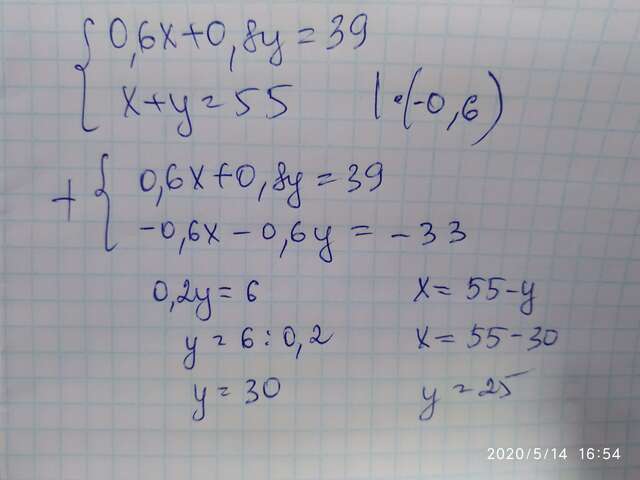 0,6x+0,8y=39
x+y=55 |·(-0,6)
+ 0,6x+0,8y=39
-0,6x-0,6y=-33
0,2y=6 x=55-y
y=6:0,2 x=55-30
y=30 y=25
2020/5/14 16:54